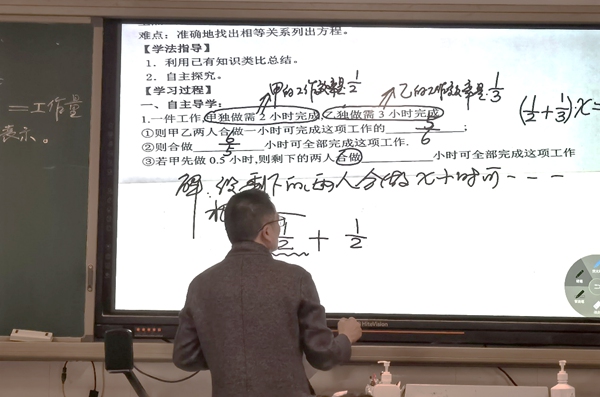 难点：准确地找出相等关系列出方程。
【学法指导】
1．利用已有知识类比总结。
2．自主探究。
【学习过程】
甲的工作效率是1/2
乙的工作效率是1/3
一、自主导学：
1.一种工作,甲独做需 2 小时完成,乙独做需 3 小时完成
(1/2+1/3)·x=
①则甲乙两人合做一小时可完成这项工作的 5/6 ;
②则合做 6/5 小时可全部完成这项工作.
③若甲先做 0.5 小时,则剩下的两人合做 小时可全部完成这项工作
解:设剩下的,两人合做x小时可---
1/2 + 1/2
=工作量
表示。
HiteVision